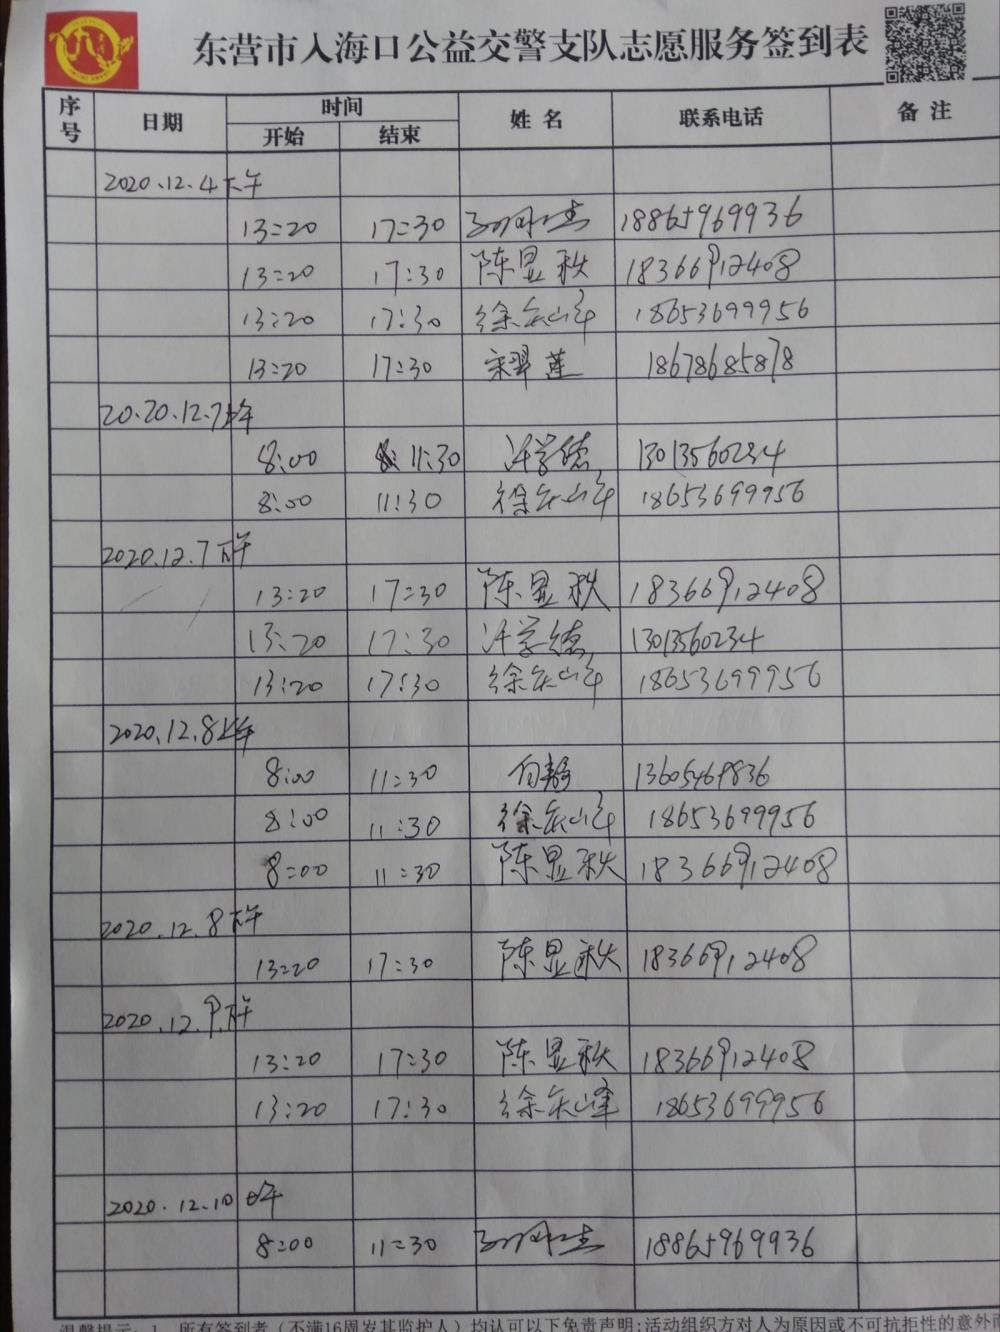 东营市入海口公益交警支队志愿服务签到表
序号 日期 时间 姓名 联系电话 备注
开始 结束
2020.12.4下午
13:20 17:30 18865969936
13:20 17:30 陈显秩 18366912408
13:20 17:30 徐庆山峰 18653699956
13:20 17:30 宋翠莲 18678685878
20.20.12.7上午
8:00 11:30 许学德 13013560234
8:00 11:30 徐庆山峰 18653699956
2020.12.7下午
13:20 17:30 陈显秩 18366912408
13:20 17:30 许学德 13013560234
13:20 17:30 徐庆山峰 18653699956
2020.12.8上午
8:00 11:30 向静 13605469836
8:00 11:30 徐庆山峰 18653699956
8:00 11:30 陈显秩 18366912408
2020.12.8下午
13:20 17:30 陈显秩 18366912408
2020.12.9下午
13:20 17:30 陈显秩 18366912408
13:20 17:30 徐庆峰 18653699956
2020.12.10上午
8:00 11:30 18865969936
温馨提示:1、所有签到者(不满16周岁其监护人)均认可以下免责声明;活动组织方对人为原因或不可抗拒性的意外